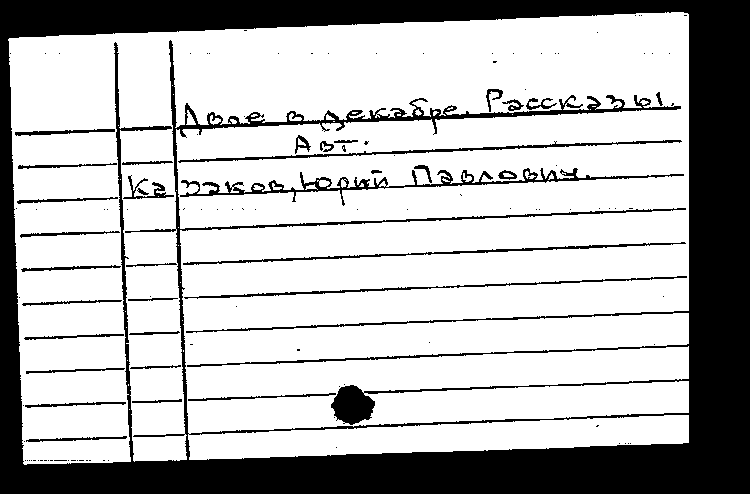 Двое в декабре. Рассказы.
Авт:
Казаков, Юрий Павлович.